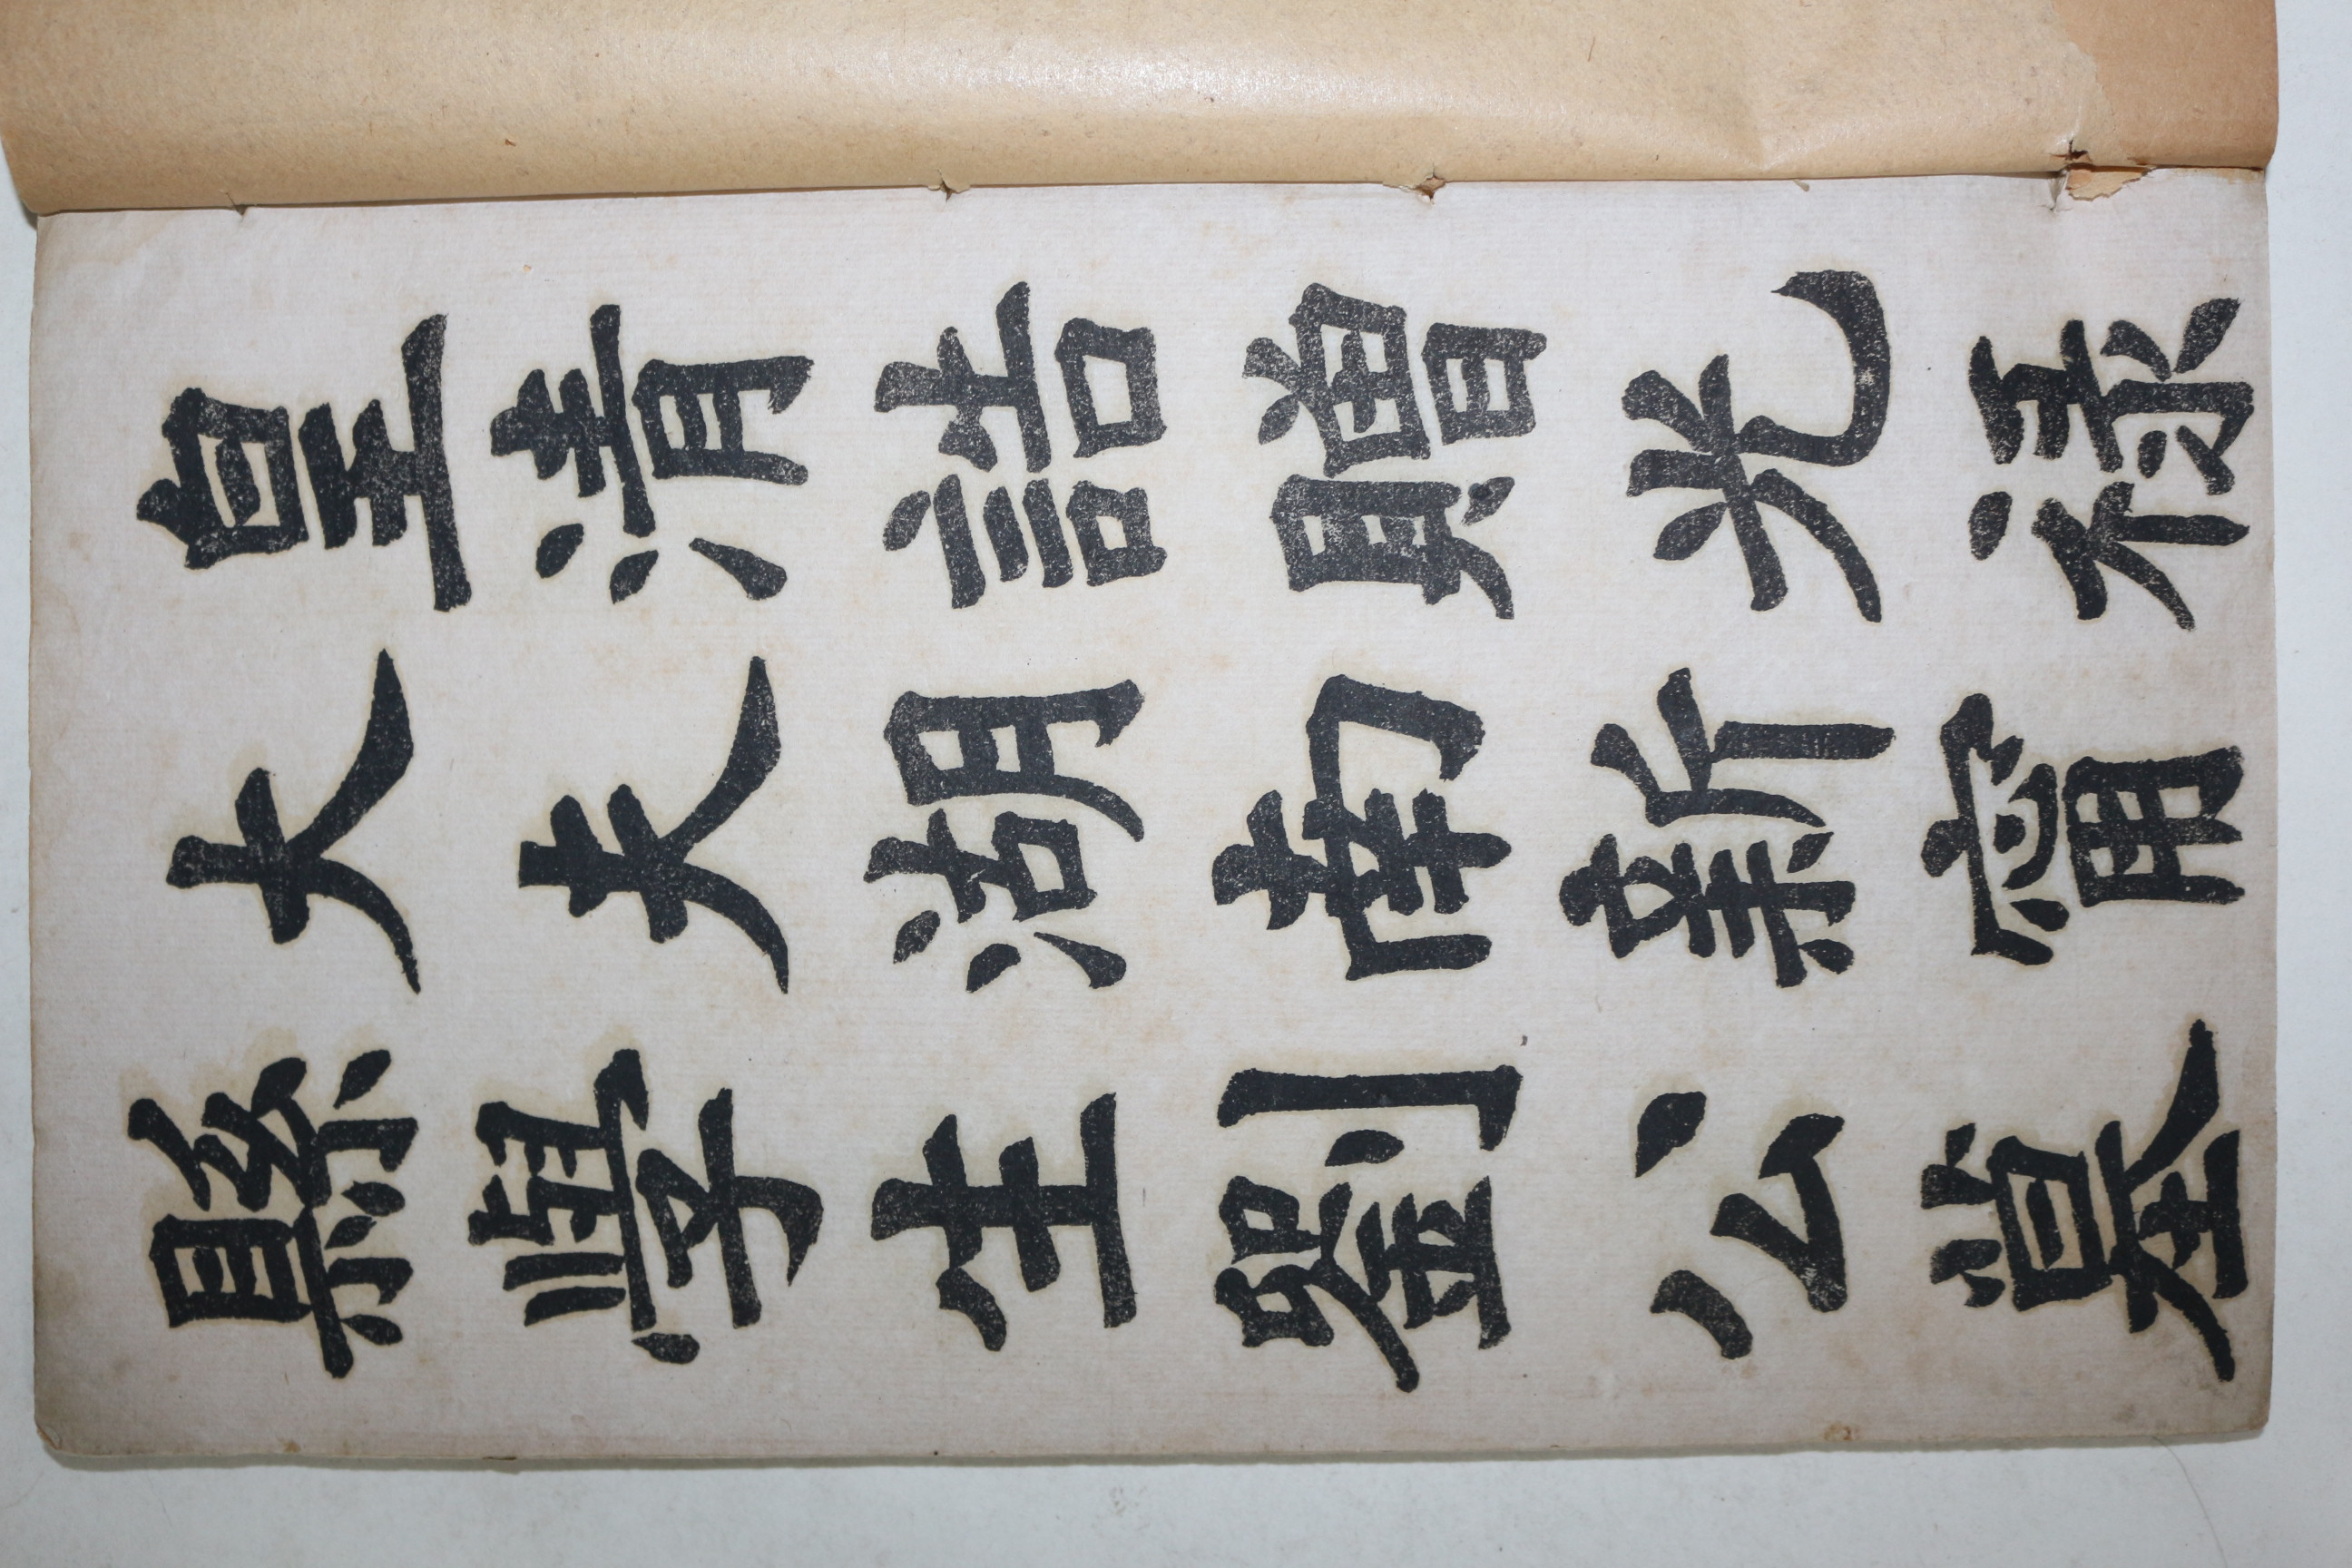 皇清誥贈光祿
大夫湖南新甯
縣學生劉公墓